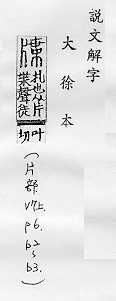 說文解字
大徐本
牒
札也从片
枼聲徒
叶
切
(片部.
V7上.
p6.
b2
~
b3.)